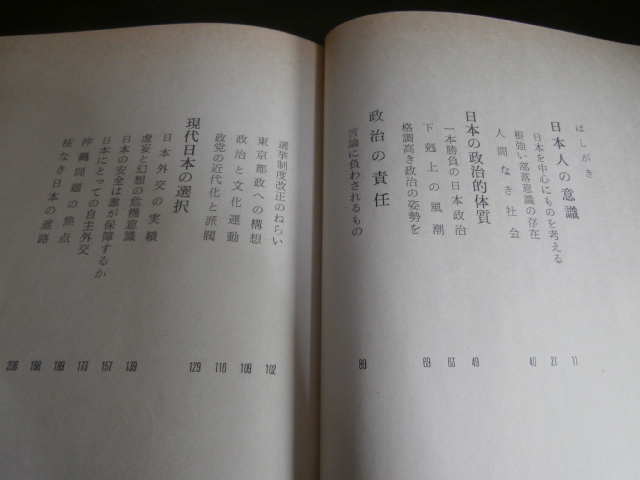 はしがき
日本人の意識
日本を中心にものを考える 11
根強い部落意識の存在 27
人間なき社会 40
日本の政治的体質 49
一本勝負の日本政治 63
下剋上の風潮 69
格調高き政治の姿勢を
政治の責任 89
言論に負わされるもの
選挙制度改正のねらい 102
東京都政への構想 109
政治と文化運動 116
政党の近代化と派閥 129
現代日本の選択
日本外交の実績 139
虚妄と幻想の危機意識 157
日本の安全は誰が保障するか 173
日本にとっての自主外交 189
沖縄問題の焦点 198
核なき日本の進路 208